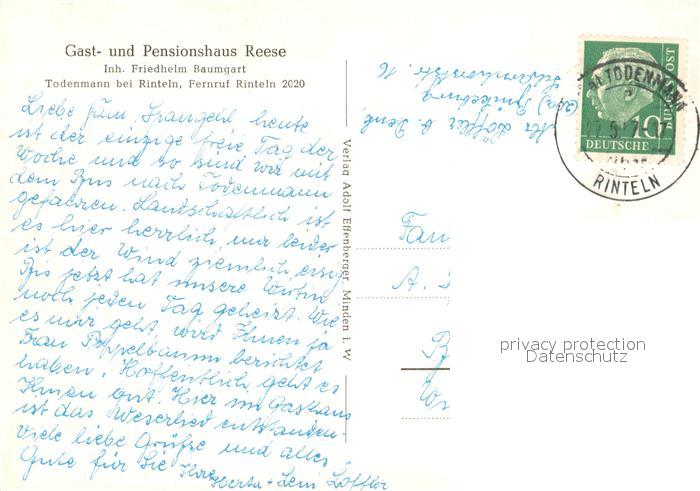 Gast- und Pensionshaus Reese
Inh. Friedhelm Baumgart
Todenmann bei Rinteln, Fernruf Rinteln 2020
Liebe Fam. heute
ist der einzige freie Tag der
Woche und so sind wir mit
dem Bus nach Todenmann
gefahren. Landschaftlich ist
es hier herrlich, nur leider
ist der Wind ziemlich eisig
Bis jetzt hat unsere Wirtin
noch jeden Tag geheizt. Wie
es mir geht, wird Ihnen ja
Frau Poppelbaum berichtet
haben. Hoffentlich geht es
Ihnen gut. Hier im Gasthaus
ist das Weserlied entstanden
Viele liebe Grüße und alles
Gute für Sie Ihre
Herta + Löffler
Verlag Adolf Effenberger, Minden i. W.
Löffler b.
Bückeburg
16
TODENMANN
RINTELN
10
DEUTSCHE
POST
Fam
A.
privacy protection
Datenschutz